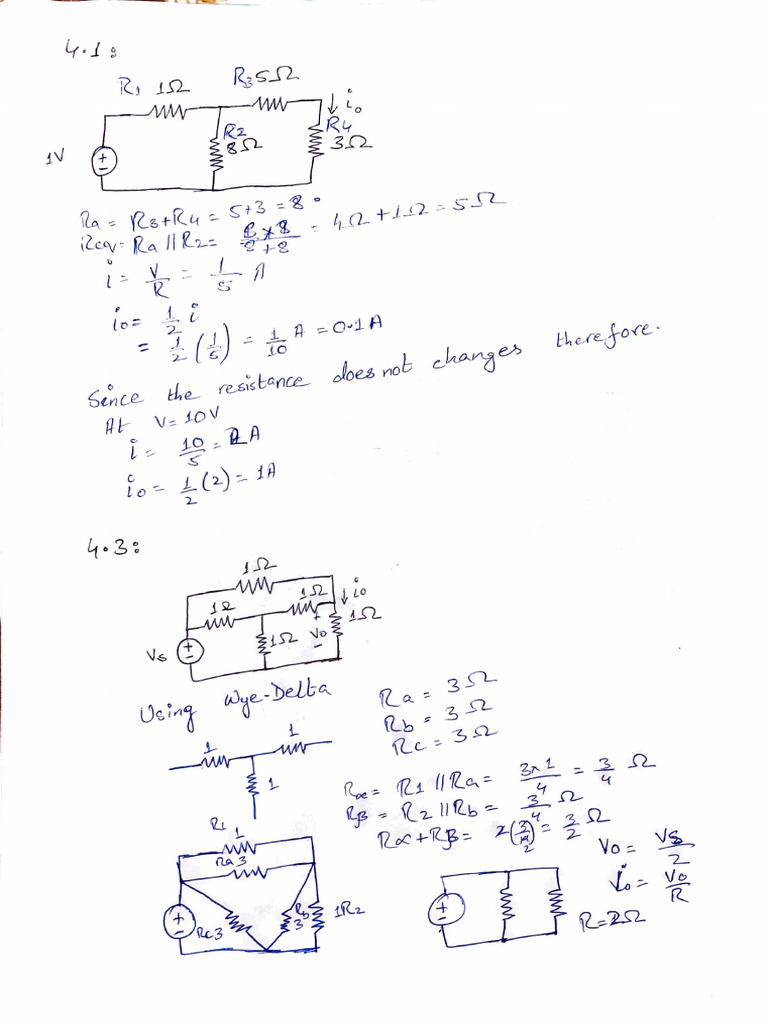 4.1:
R1 1Ω
R3 5Ω
io
R2
8Ω
R4
3Ω
1V
Ra = R3+R4 = 5+3 = 8
Req = Ra || R2 = 8×8/8+8 = 4Ω + 1Ω = 5Ω
i = V/R = 1/5 A
io = 1/2 i
= 1/2 (1/5) = 1/10 A = 0.1A
Since the resistance does not changes therefore.
At V = 10V
i = 10/5 = 2A
io = 1/2 (2) = 1A
4.3:
1Ω
1Ω 1Ω io
1Ω + Vo - 1Ω
Vs
Using Wye-Delta
Ra = 3Ω
Rb = 3Ω
Rc = 3Ω
1 1
1
Rα = R1 || Ra = 3×1/4 = 3/4 Ω
Rβ = R2 || Rb = 3/4 Ω
Rα + Rβ = 2(3/4) = 3/2 Ω
R1
1
Ra 3
Rc 3
Rb
3
1 R2
Vo = Vs/2
io = Vo/R
R = 2Ω